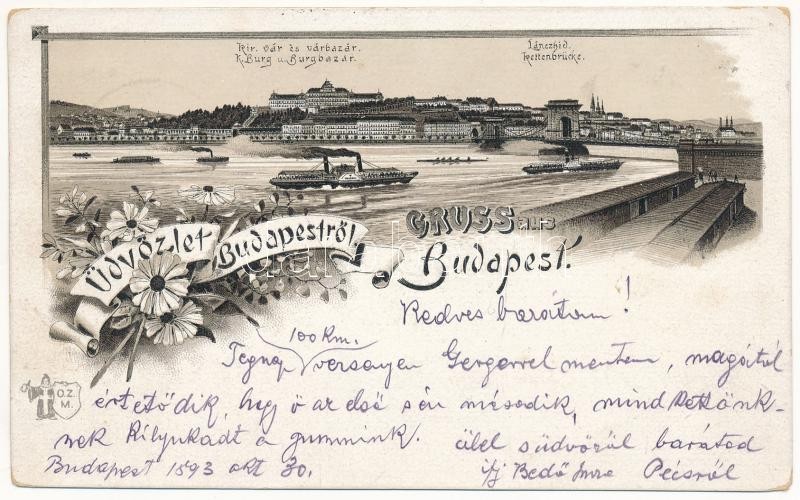 Kir. vár és várbazár.
K. Burg u. Burgbazár.
Lánczhid.
Kettenbrücke.
Üdvözlet Budapestről
GRUSS aus
Budapest.
Kedves barátom!
100 Km.
Tegnap versenyen Gergerrel mentem, magától
értetődik, hogy ő az első s én második, mind kettőnk-
nek kilyukadt a gummink. ölel s üdvözöl barátod
Budapest 1893 okt 30. ifj Bedő Imre Pécsről
O.Z.
M.